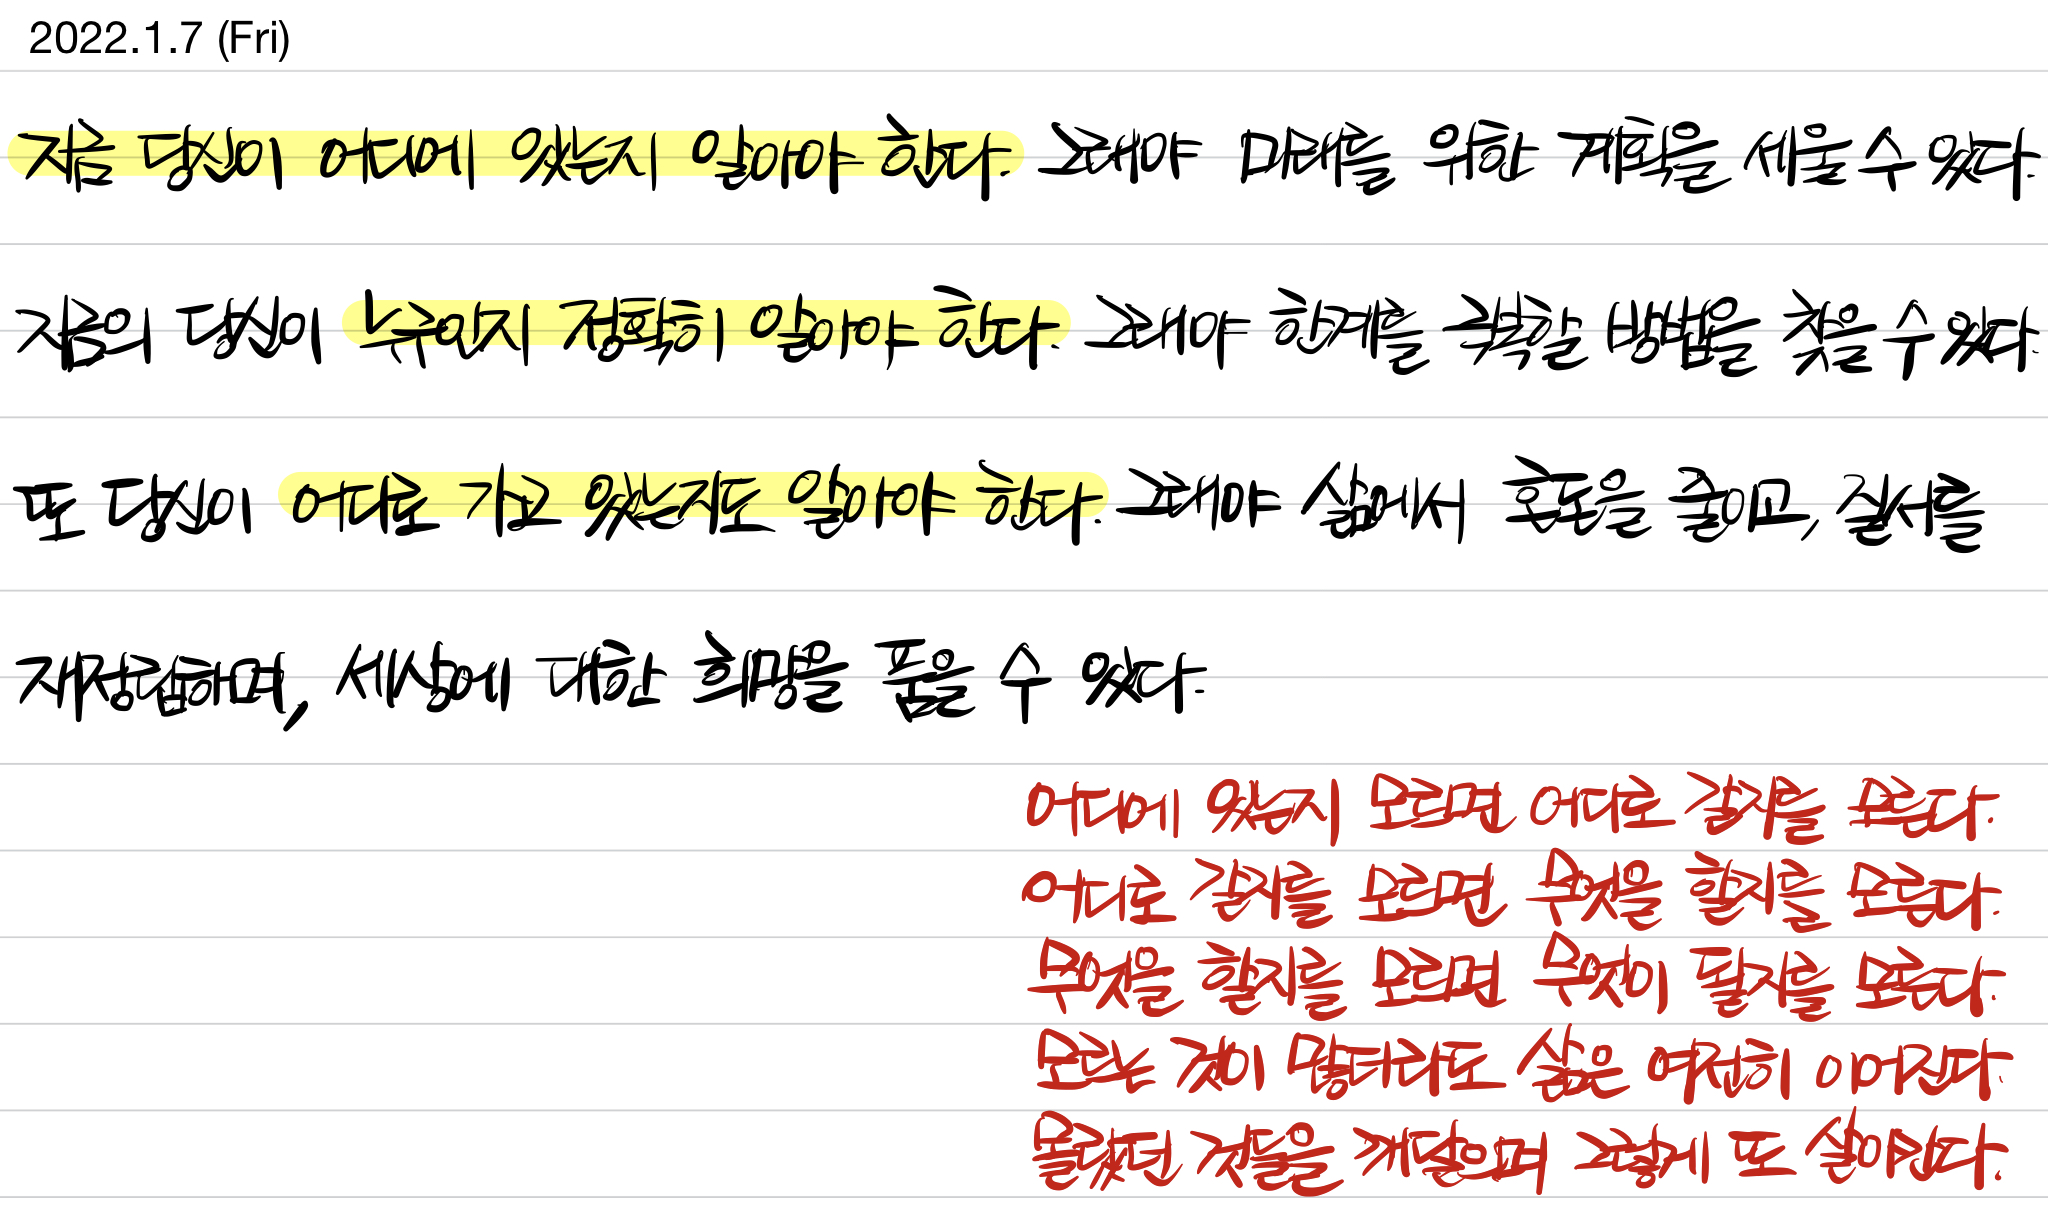 2022.1.7 (Fri)
지금 당신이 어디에 있는지 알아야 한다. 그래야 미래를 위한 계획을 세울 수 있다.
지금의 당신이 누구인지 정확히 알아야 한다. 그래야 한계를 극복할 방법을 찾을 수 있다.
또 당신이 어디로 가고 있는지도 알아야 한다. 그래야 삶에서 혼돈을 줄이고, 질서를
재정립하며, 세상에 대한 희망을 품을 수 있다.
어디에 있는지 모르면 어디로 갈지를 모른다.
어디로 갈지를 모르면 무엇을 할지를 모른다.
무엇을 할지를 모르면 무엇이 될지를 모른다.
모르는 것이 많더라도 삶은 여전히 이어진다.
몰랐던 것들을 깨달으며 그렇게 또 살아간다.